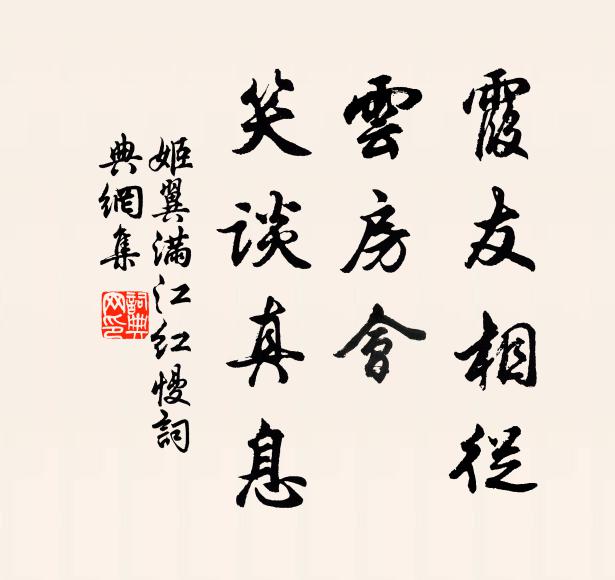 霞友相從
雲房會
笑談真息
姬翼滿江紅慢詞
典網集
詞典網印